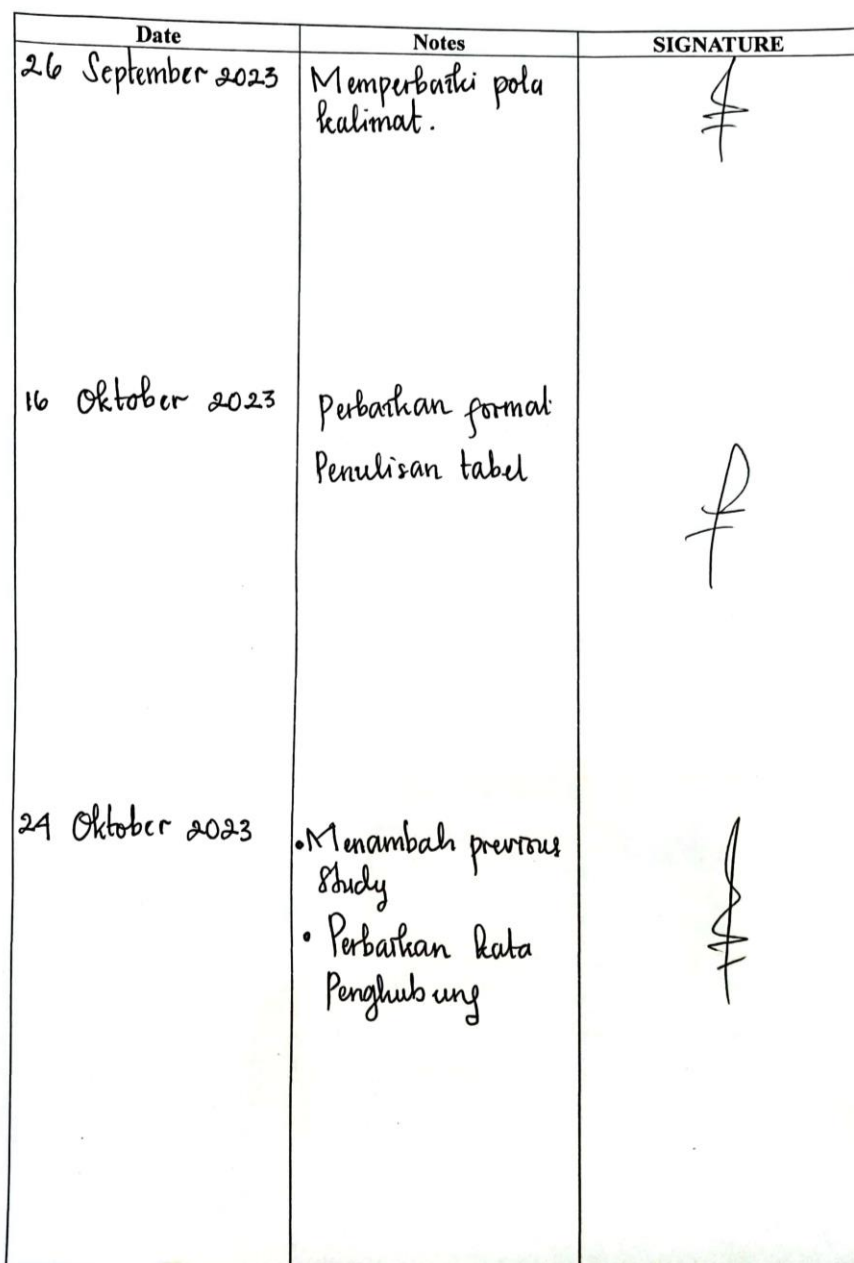 Date Notes SIGNATURE
26 September 2023 Memperbaiki pola
kalimat.
16 Oktober 2023 Perbaikan format
Penulisan tabel
24 Oktober 2023 • Menambah previous
study
• Perbaikan kata
Penghubung